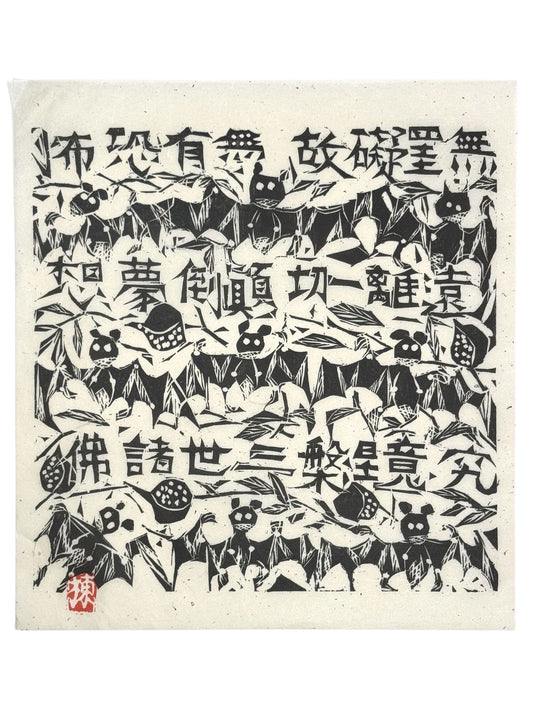 無罣礙故 無有恐怖
遠離一切顛倒夢想
究竟涅槃三世諸佛
棟